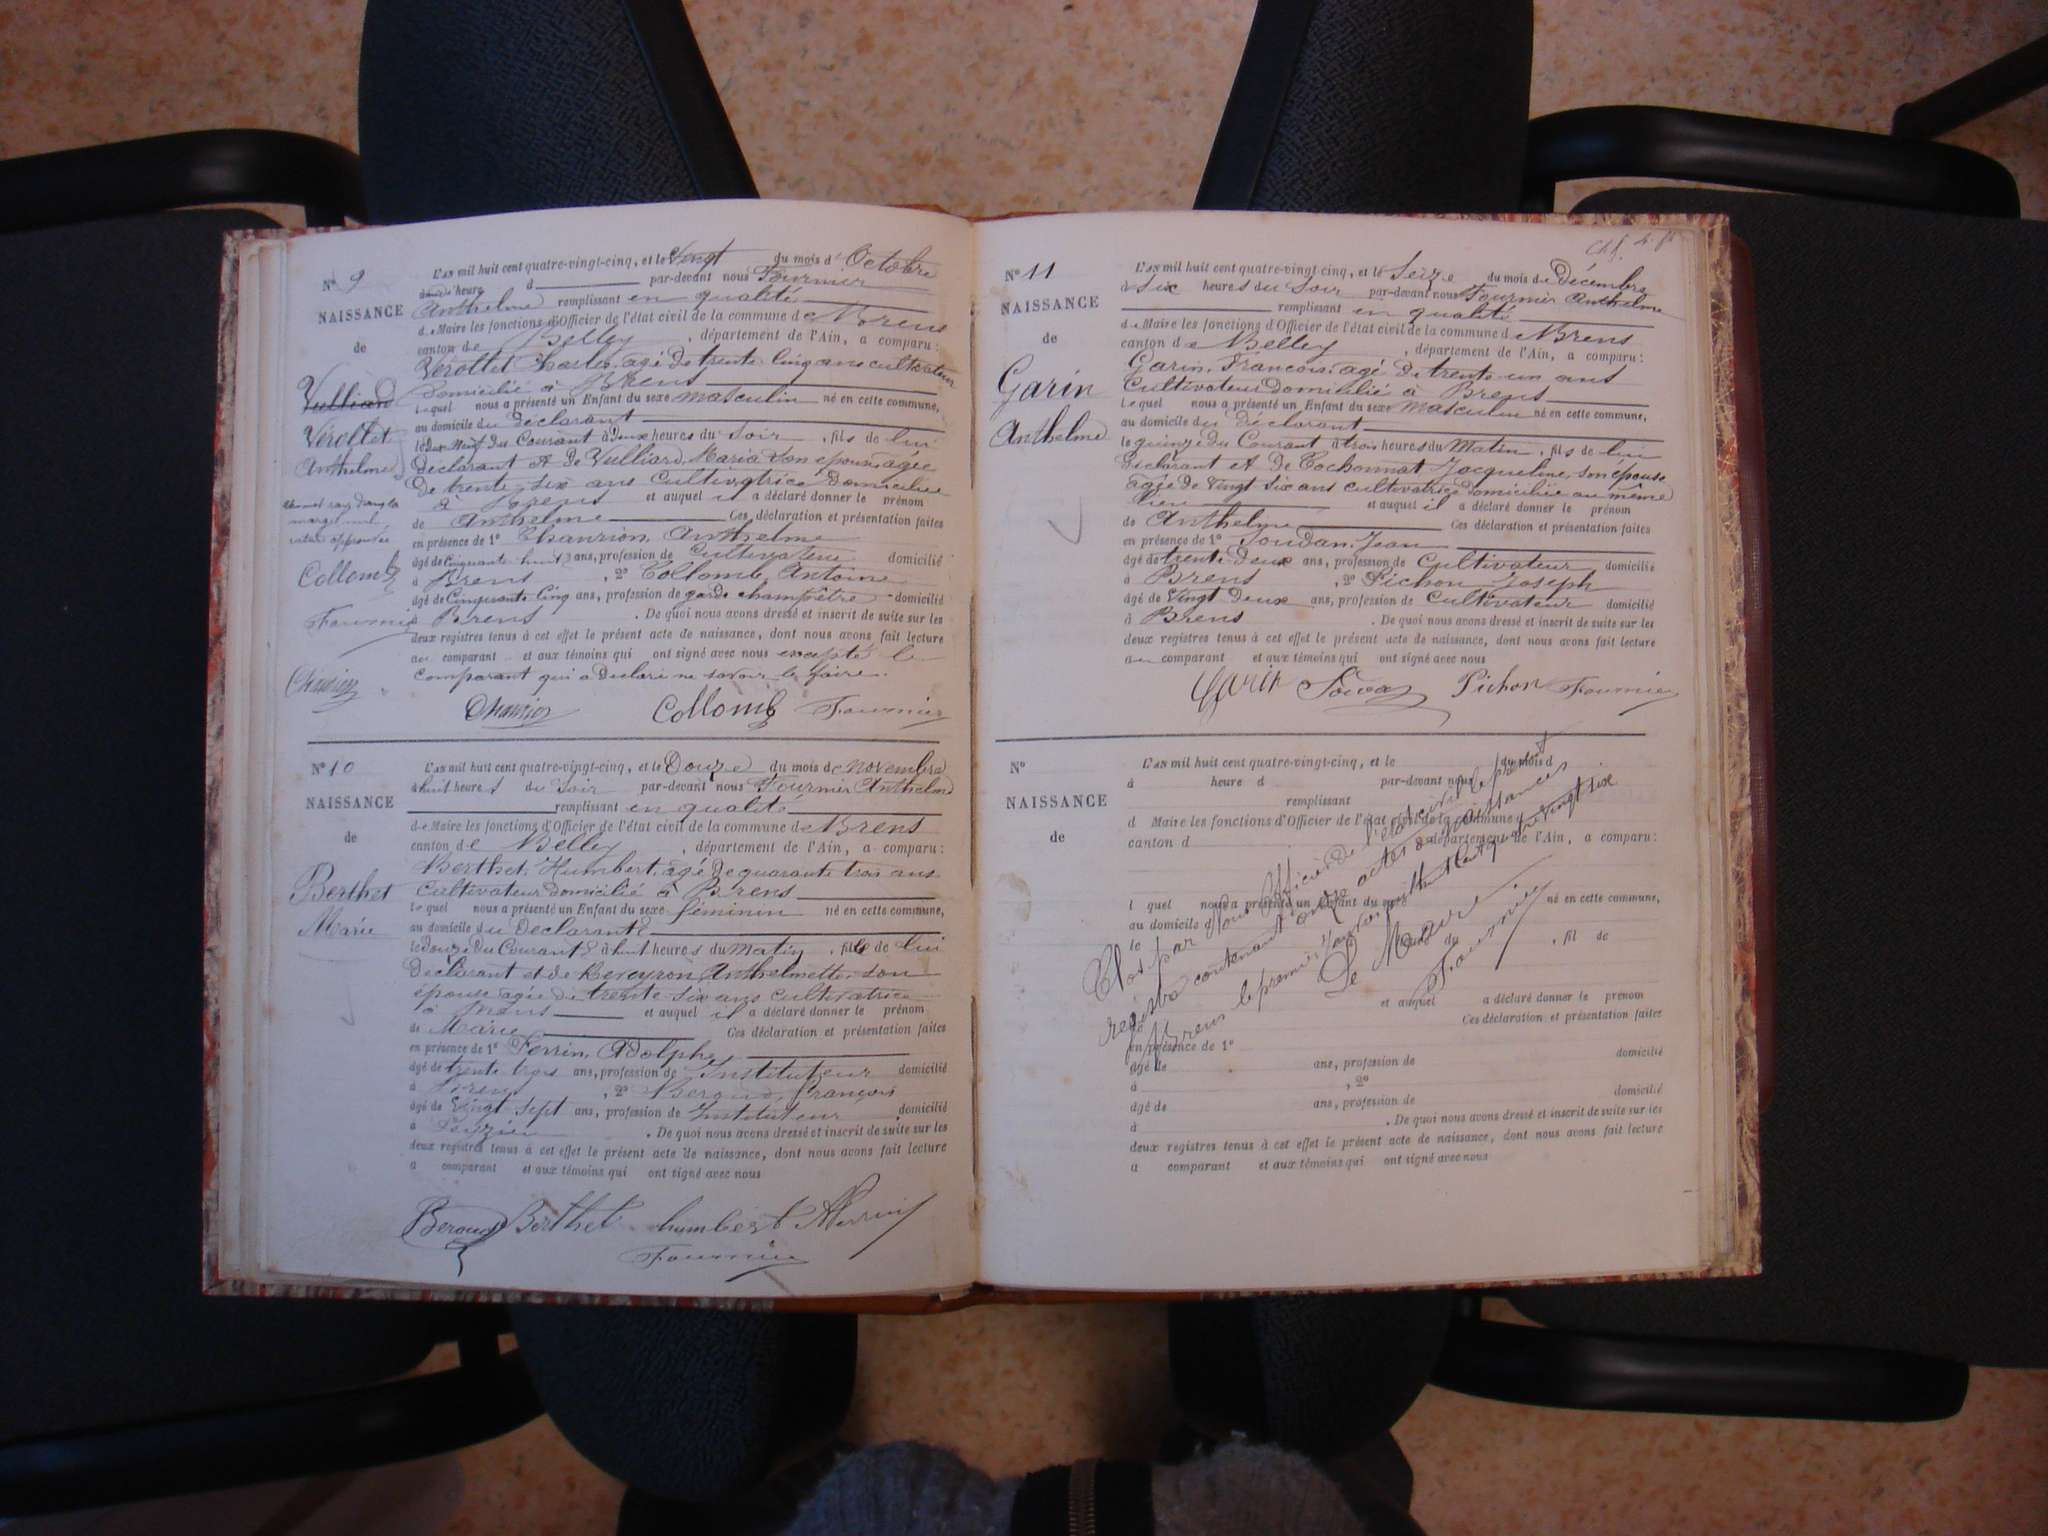 N° 9
NAISSANCE
de
Vulliard
Vérollet
Anthelme
Collomb
Fournier
Chanrion
L'AN mil huit cent quatre-vingt-cinq, et le Vingt du mois d'Octobre
heure d par-devant nous Fournier
Anthelme remplissant en qualité
de Maire les fonctions d'Officier de l'état civil de la commune de Brens
canton de Belley, département de l'Ain, a comparu:
Vérollet Charles, agé de trente cinq ans cultivateur
domicilié à Brens
Lequel nous a présenté un Enfant du sexe masculin né en cette commune,
au domicile du déclarant
le dix Neuf du Courant à deux heures du Soir, fils de lui
déclarant et de Vulliard, Maria son épouse agée
de trente six ans Cultivatrice domiciliée
à Brens et auquel il a déclaré donner le prénom
de Anthelme Ces déclaration et présentation faites
en présence de 1° Chanrion, Anthelme
âgé de Cinquante huit ans, profession de Cultivateur domicilié
à Brens, 2° Collomb, Antoine
âgé de Cinquante Cinq ans, profession de garde champêtre domicilié
à Brens. De quoi nous avons dressé et inscrit de suite sur les
deux registres tenus à cet effet le présent acte de naissance, dont nous avons fait lecture
au comparant et aux témoins qui ont signé avec nous excepté le
Comparant qui a déclaré ne savoir le faire.
Chanrion Collomb Fournier
N° 10
NAISSANCE
de
Berthet
Marie
L'AN mil huit cent quatre-vingt-cinq, et le Douze du mois de Novembre
à huit heures du Soir par-devant nous Fournier Anthelme
remplissant en qualité
de Maire les fonctions d'Officier de l'état civil de la commune de Brens
canton de Belley, département de l'Ain, a comparu:
Berthet, Humbert, agé de quarante trois ans
Cultivateur domicilié à Brens
lequel nous a présenté un Enfant du sexe féminin né en cette commune,
au domicile du Déclarant
le douze du Courant à huit heures du Matin, fille de lui
Déclarant et de Anthelmette son
épouse agée de trente six ans Cultivatrice
à Brens et auquel il a déclaré donner le prénom
de Marie Ces déclaration et présentation faites
en présence de 1° Perrin, Adolphe
âgé de trente trois ans, profession de Instituteur domicilié
à Brens, 2° Beroud, François
âgé de Vingt-sept ans, profession de Instituteur domicilié
à . De quoi nous avons dressé et inscrit de suite sur les
deux registres tenus à cet effet le présent acte de naissance, dont nous avons fait lecture
a comparant et aux témoins qui ont signé avec nous
Beroud Berthet humbert APerrin
Fournier
N° 11
NAISSANCE
de
Garin
Anthelme
L'AN mil huit cent quatre-vingt-cinq, et le Seize du mois de Décembre
à Six heures du Soir par-devant nous Fournier Anthelme
remplissant en qualité
de Maire les fonctions d'Officier de l'état civil de la commune de Brens
canton de Belley, département de l'Ain, a comparu:
Garin, François, agé de trente un ans
Cultivateur Domicilié à Brens
Lequel nous a présenté un Enfant du sexe Masculin né en cette commune,
au domicile du déclarant
le quinze du Courant à trois heures du Matin, fils de lui
Déclarant et de Cochonnat Jacqueline, son épouse
agée de Vingt Six ans cultivatrice domiciliée au même
lieu et auquel il a déclaré donner le prénom
de Anthelme Ces déclaration et présentation faites
en présence de 1° Joudan, Jean
âgé de trente Deux ans, profession de Cultivateur domicilié
à Brens, 2° Pichon Joseph
âgé de Vingt Deux ans, profession de Cultivateur domicilié
à Brens. De quoi nous avons dressé et inscrit de suite sur les
deux registres tenus à cet effet le présent acte de naissance, dont nous avons fait lecture
au comparant et aux témoins qui ont signé avec nous
Garin Pichon Fournier
N°
NAISSANCE
de
L'AN mil huit cent quatre-vingt-cinq, et le du mois d
à heure d par-devant nous
remplissant
d Maire les fonctions d'Officier de l'état civil de la commune d
canton d département de l'Ain, a comparu:
l quel nous a présenté un Enfant du sexe né en cette commune,
au domicile d
le heure du , fil de
et auquel a déclaré donner le prénom
de Ces déclaration et présentation faites
en présence de 1°
âgé de ans, profession de domicilié
à , 2°
âgé de ans, profession de domicilié
à . De quoi nous avons dressé et inscrit de suite sur les
deux registres tenus à cet effet le présent acte de naissance, dont nous avons fait lecture
a comparant et aux témoins qui ont signé avec nous
Clos par Nous Officier de l'état civil le présent
registre contenant onze actes de naissances
à Brens le premier Janvier mil huit cent quatre vingt six
Le Maire
Fournier